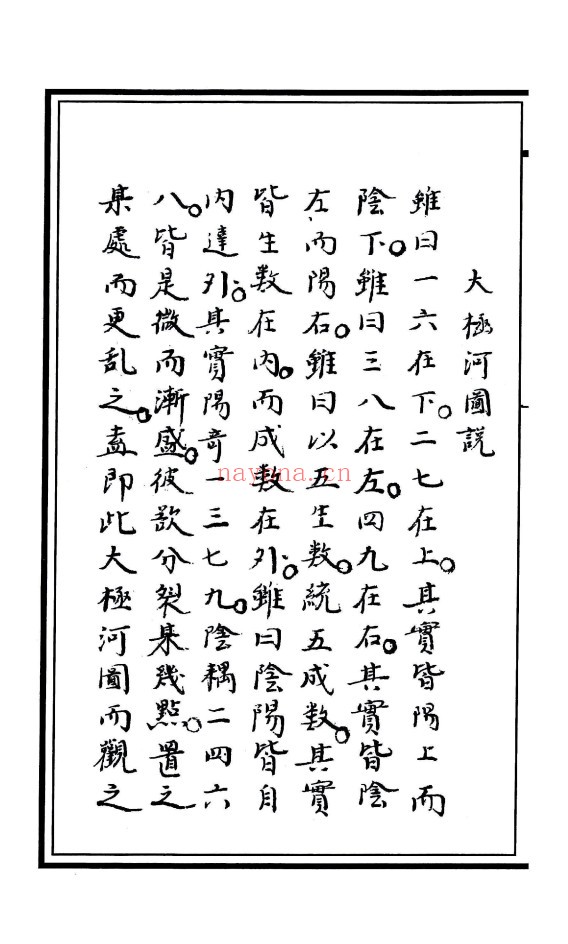 大極河圖說
雖曰一六在下。二七在上。其實皆陽上而
陰下。雖曰三八在左。四九在右。其實皆陰
左而陽右。雖曰以五生數。統五成數。其實
皆生數在內。而成數在外。雖曰陰陽皆自
內達外。其實陽奇一三七九。陰耦二四六
八。皆是微而漸盛。彼欲分裂某幾點。置之
某處而更乱之。盍即此大極河圖而觀之
nayona.cn